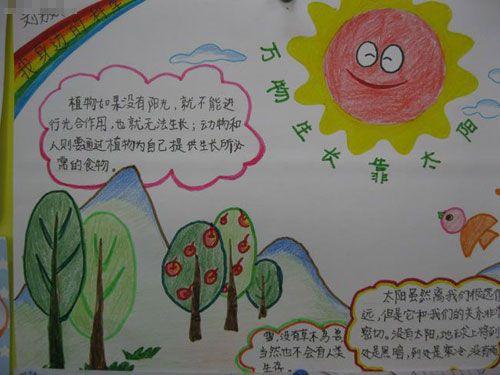 我身边的
万物生长靠太阳
植物如果没有阳光，就不能进
行光合作用，也就无法生长；动物和
人则植物为自己提供生长所必
需的食物。
太阳虽然离我们很遥
远，但是它和我们的关系非
密切。没有太阳，地球上将到
处是黑暗，到处是寒冷，没有
雪，没有草木鸟
当然也不会有人类
生存。